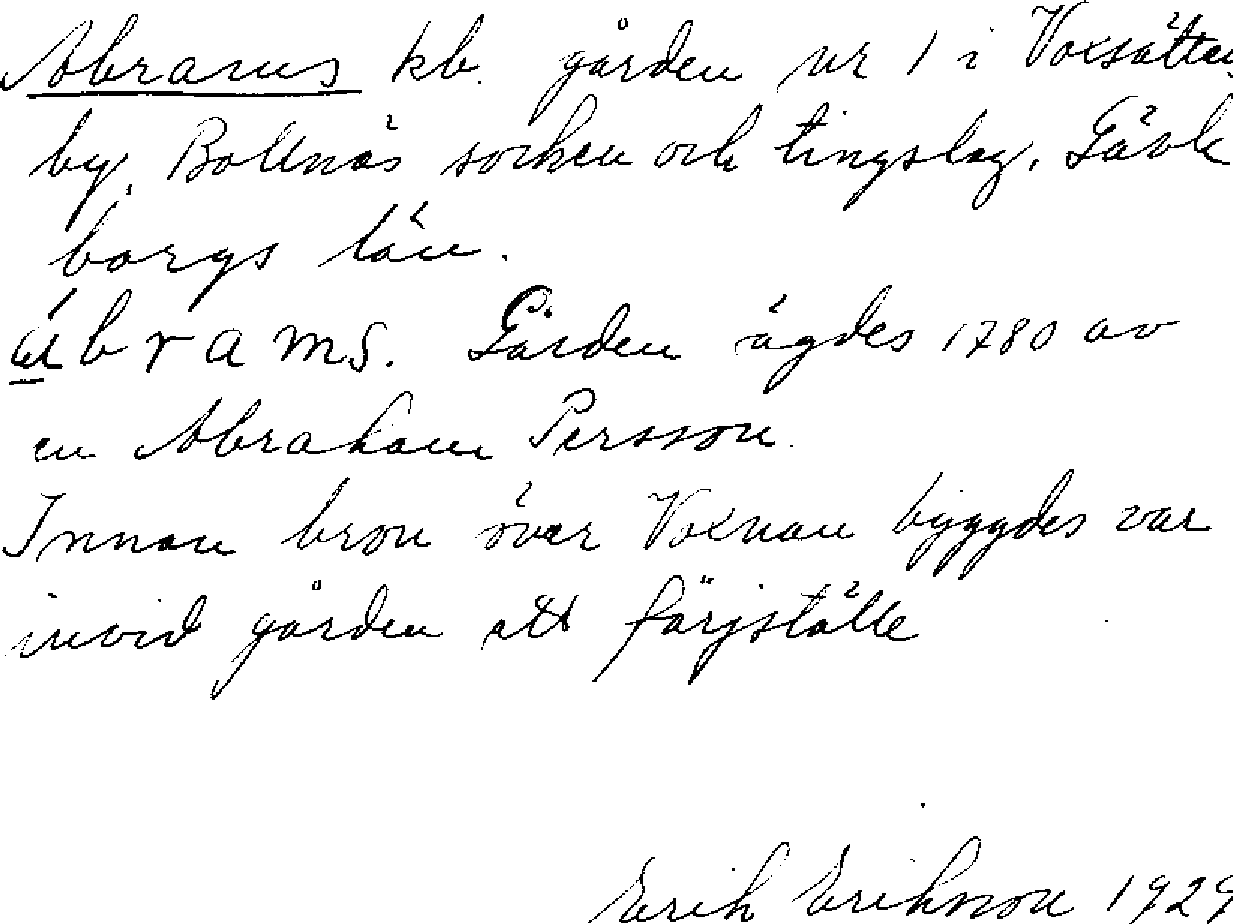 Abrams kb. gården nr 1 i Voxsätter
by, Bollnäs socken och tingslag, Gävle
borgs län.
ábrams. Gården ägdes 1780 av
en Abraham Persson.
Innan bron över Voxnan byggdes var
invid gården ett färjställe
Erik Erikson 1929